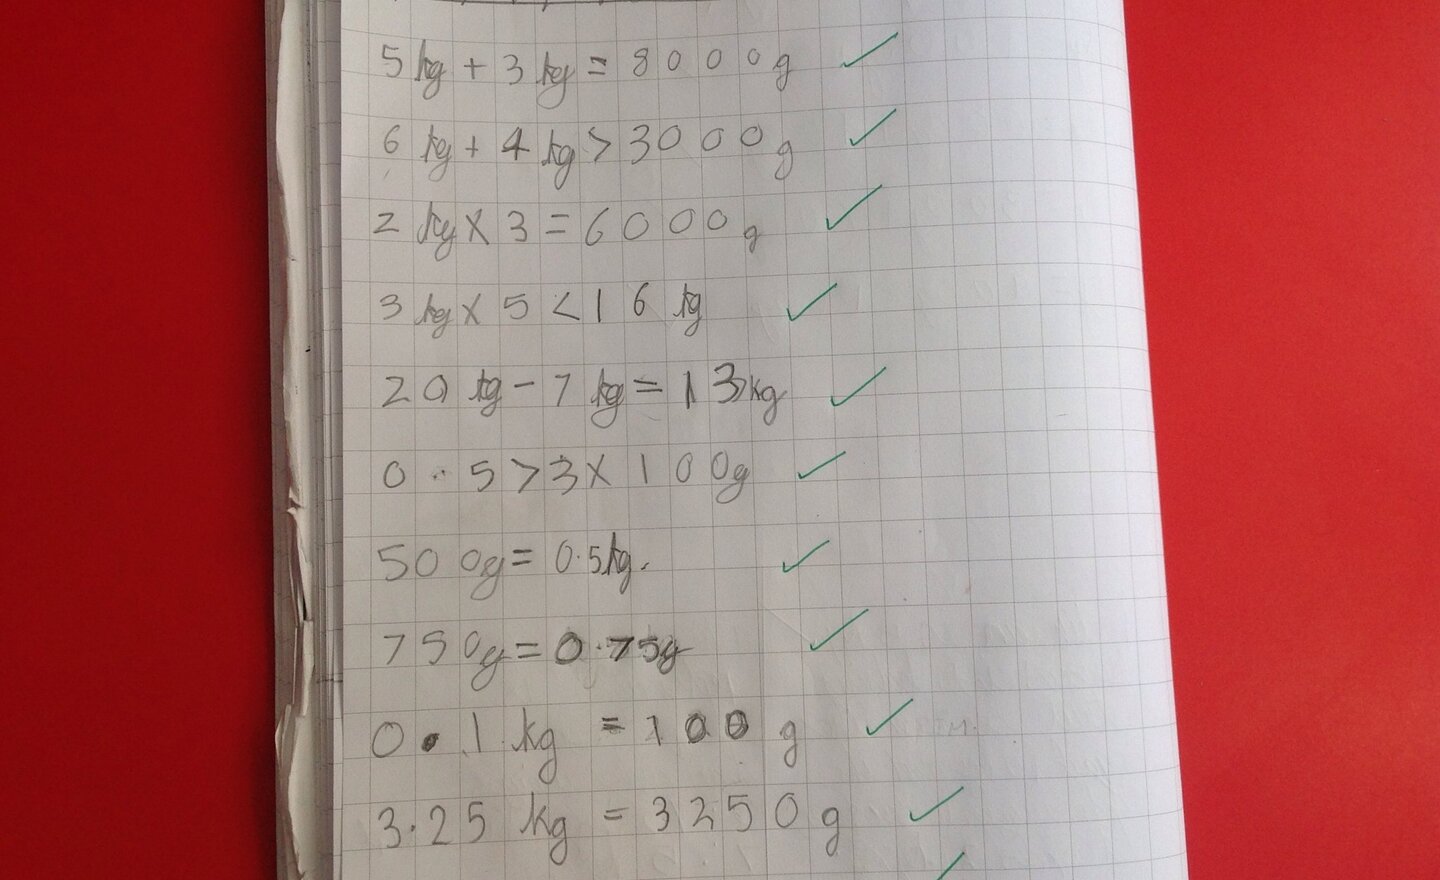 5kg + 3kg = 8000g
6kg + 4kg > 3000g
2kg x 3 = 6000g
3kg x 5 < 16kg
20kg - 7kg = 13kg
0.5 > 3 x 100g
500g = 0.5kg.
750g = 0.75g
0.1kg = 100g
3.25kg = 3250g